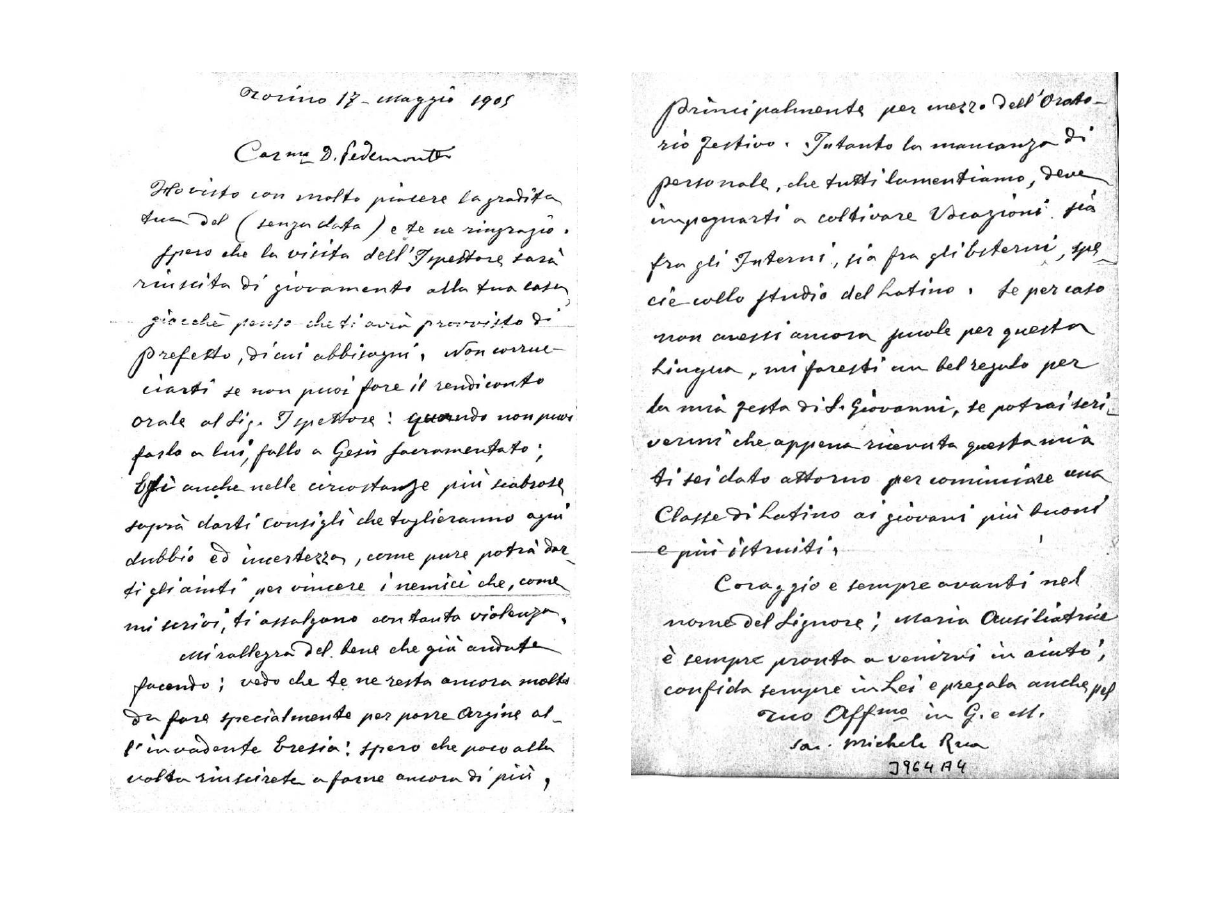 Torino 17 - Maggio 1905
Carmo D. Pedemonte
Ho visto con molto piacere la gradita
tua del (senza data) e te ne ringrazio.
Spero che la visita dell'Ispettore sarà
riuscita di giovamento alla tua casa,
giacchè penso che ti avrà provvisto di
Prefetto, di cui abbisogni. Non corruc-
ciarti se non puoi fare il rendiconto
orale al Sig. Ispettore: quando non puoi
farlo a lui, fallo a Gesù Sacramentato;
Egli anche nelle circostanze più scabrose
saprà darti consigli che toglieranno ogni
dubbio ed incertezza, come pure potrà dar-
ti gli aiuti per vincere i nemici che, come
mi scrivi, ti assalgono con tanta violenza.
Mi rallegra del bene che già andate
facendo; vedo che te ne resta ancora molto
da fare specialmente per porre argine al-
l'invadente Eresia: spero che poco alla
volta riuscirete a farne ancora di più,
principalmente per mezzo dell'Orato-
rio festivo. Intanto la mancanza di
personale, che tutti lamentiamo, deve
impegnarti a coltivare Vocazioni sia
fra gli Interni, sia fra gli Esterni, spe
cie collo studio del Latino. Se per caso
non avessi ancora scuole per questa
Lingua, mi faresti un bel regalo per
la mia festa di S. Giovanni, se potrai scri-
vermi che appena ricevuta questa mia
ti sei dato attorno per cominciare una
Classe di Latino ai giovani più buoni
e più istruiti.
Coraggio e sempre avanti nel
nome del Signore; Maria Ausiliatrice
è sempre pronta a venirvi in aiuto;
confida sempre in Lei e pregala anche pel
tuo Affmo in G. e M.
Sac. Michele Rua
3964 A4